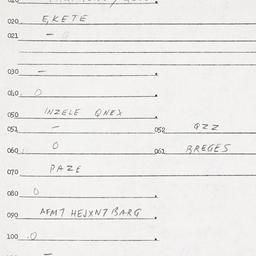 020 E,KETE
021 -
030 - .
040 0 .
050 INZELE QNEX .
051 - 052 QZZ .
060 0 061 BREGES .
070 PAZE
080 0 .
090 AFM7 HEJXN7BARG .
100 .0 .
-